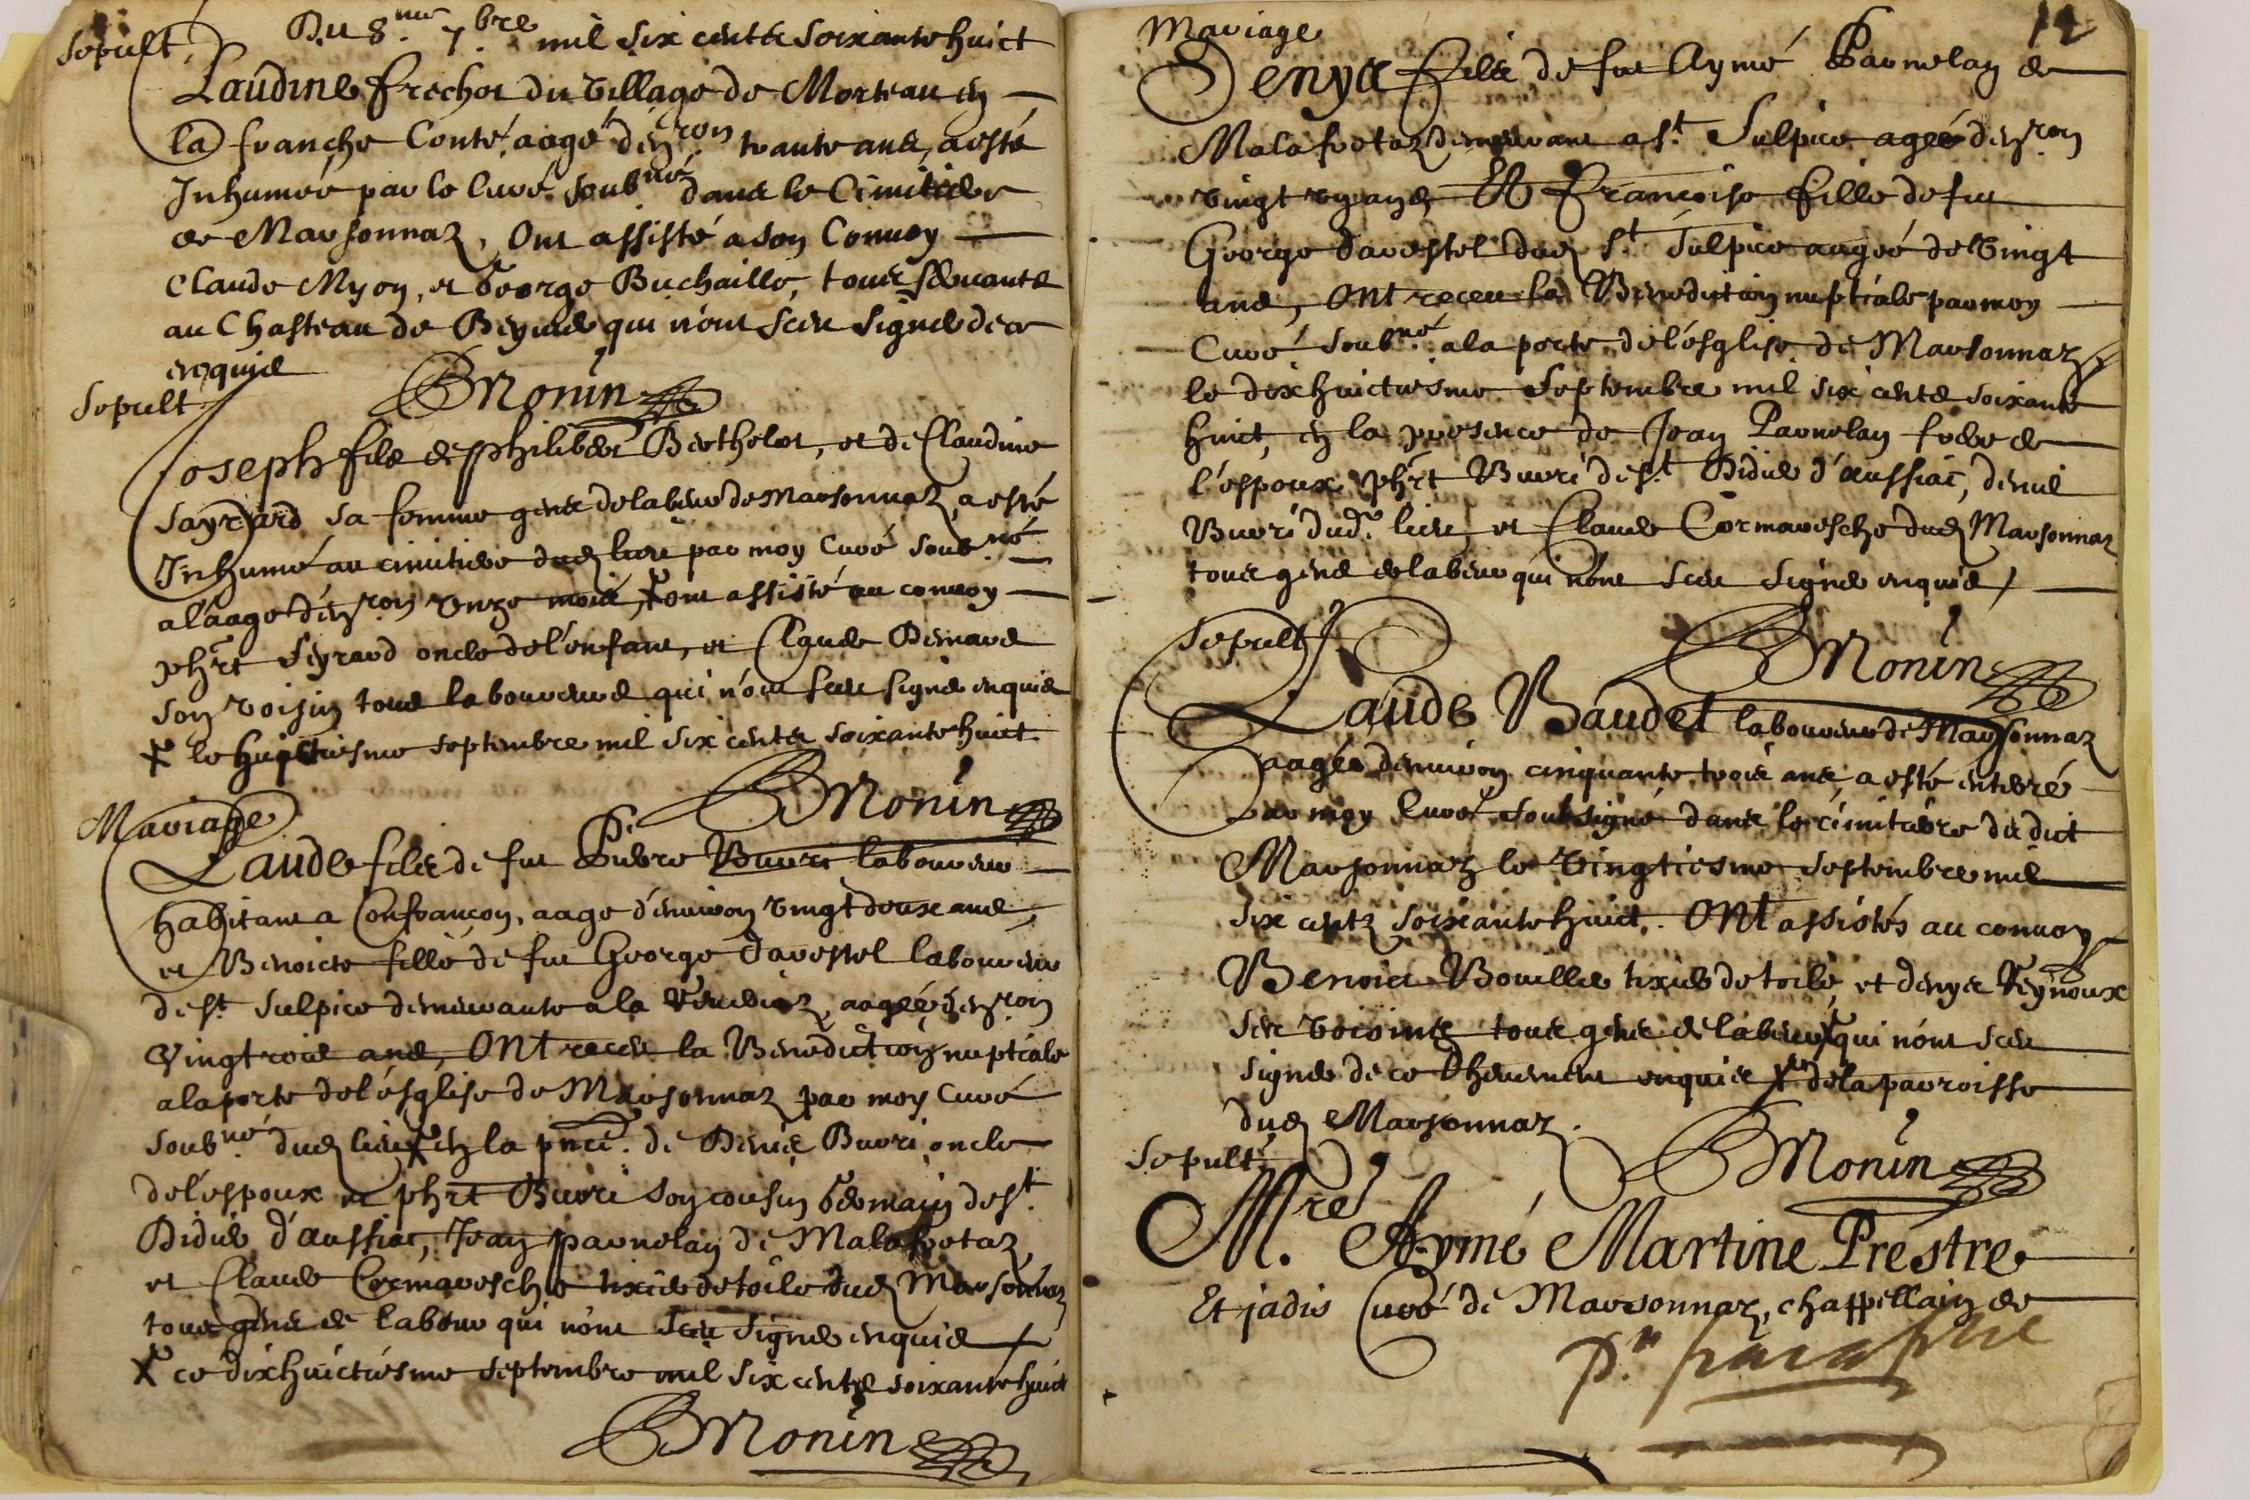 Sepult.
Du 8.me 7.bre mil six cents soixante huict
Claudine frechot du village de Morteau en
la franche Conté, aagé d'en.ron trante ans, a esté
Inhumée par le Curé soub.né dans le Cimitiere
de Marsonnaz, Ont assisté a son Convoy
Claude Myon, et George Buchaille, tous servants
au Chasteau de Beyvie qui n'ont sceu signer de ce
enquis
BMonin
Sepult.
Joseph fils de philibert Berthelot, et de Claudine
Sayrard sa femme gens de labeur de Marsonnaz, a esté
Inhumé au cimitiere dud. lieu par moy Curé soub.né
a l'aage d'en.ron unze mois, + ont assisté au convoy
phr̃t Seyrard oncle de l'enfant, et Claude Bernard
son voisin tous laboureurs qui n'ont sceu signer enquis
+ le huictiesme septembre mil six cents soixante huict
BMonin
Mariage
Claude fils de fut Pierre Buvri laboureur
habitant a Confrançon, aage d'environ vingt deux ans,
et Benoicte fille de fut George Davestel laboureur
de st. Sulpice demeurante a la aagée d'en.ron
Vingtrois ans, ONt receu la Benediction nuptiale
a la porte de l'ésglise de Marsonnaz par moy Curé
soub.né dud. lieu + en la pñce. de Denis Buvri oncle
de l'espoux et phr̃t Buvri son cousin Germain de st.
Didier d'aussiat, Jean pavnelay de Malafretaz,
et Claude Cormaresche tixier de toile dud. Marsonnaz
tous gens de labeur qui n'ont sceu signer enquis
+ ce dixhuictiesme septembre mil six cents soixante huict
BMonin
12
Mariage
Denys fils de fut Aymé Pavnelay de
Malafretaz demeurant a st. Sulpice agéé d'en.ron
vingt ans, Et Françoise fille de fut
George Davestel dud. st. Sulpice aagéé de Vingt
ans, ONt receu la Benediction nuptiale par moy
Curé soub.né a la porte de l'ésglise de Marsonnaz
le dixhuictiesme septembre mil six cents soixante
huict, en la presence de Jean Pavnelay frere de
l'éspoux, phr̃t Buvri de st. Didier d'aussiat, denis
Buvri dud. lieu, et Claude Cormaresche dud. Marsonnaz
tous gens de labeur qui n'ont sceu signer enquis
Sepult
Claude Baudet laboureur de Marsonnaz
aagée d'environ cinquante trois ans, a esté enterré
BMonin
par moy Curé soubsigné dans le cimitiere du dict
Marsonnaz le vingtiesme septembre mil
six cents soixante huict. ONt assistés au convoy
Benoict Bouillier tixier de toile, et denys Veynoux
ses voisins tous gens de labeur + qui n'ont sceu
signer de ce enquis + de la parroisse
dud. Marsonnaz.
BMonin
Sepult
M.re Aymé Martine Préstre
Et jadis Curé de Marsonnaz, chappellain de
p.r paraphe